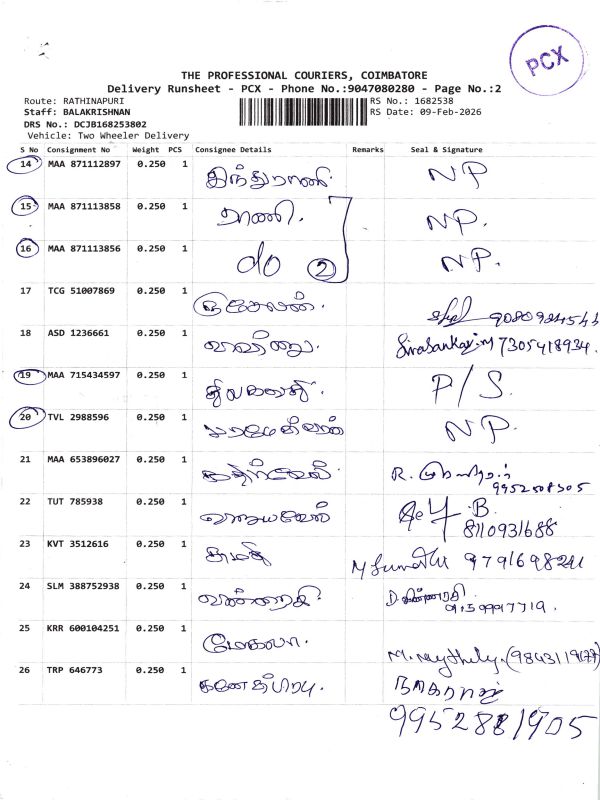 PCX
THE PROFESSIONAL COURIERS, COIMBATORE
Delivery Runsheet - PCX - Phone No.:9047080280 - Page No.:2
Route: RATHINAPURI
RS No.: 1682538
Staff: BALAKRISHNAN
RS Date: 09-Feb-2026
DRS No.: DCJB168253802
Vehicle: Two Wheeler Delivery
S No Consignment No Weight PCS Consignee Details Remarks Seal & Signature
14 MAA 871112897 0.250 1 இந்துராணி NP
15 MAA 871113858 0.250 1 ராணி. NP.
16 MAA 871113856 0.250 1 do 2 NP.
17 TCG 51007869 0.250 1
18 ASD 1236661 0.250 1 7305418934.
19 MAA 715434597 0.250 1 P/S.
20 TVL 2988596 0.250 1 NP.
21 MAA 653896027 0.250 1 R.
9952508305
22 TUT 785938 0.250 1 B.
8110931688
23 KVT 3512616 0.250 1 சுமதி M Sumathi 9791698241
24 SLM 388752938 0.250 1
25 KRR 600104251 0.250 1 மேகலா. M. Mythely.
26 TRP 646773 0.250 1 நாகராஜ்
9952881905